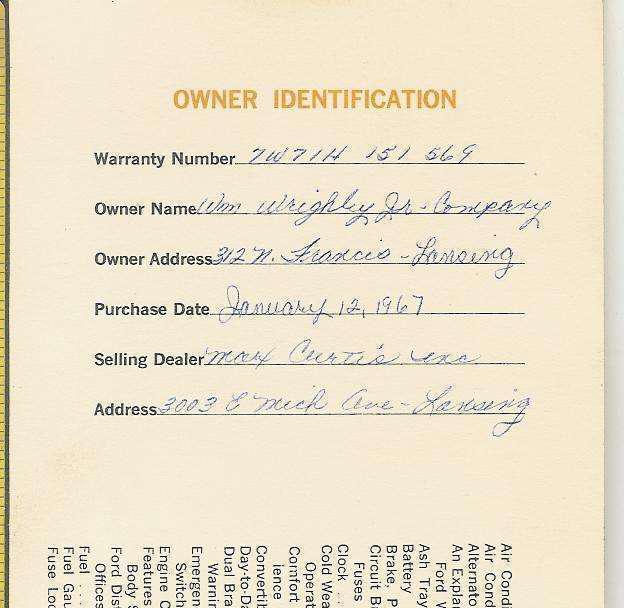 OWNER IDENTIFICATION
Warranty Number 7W71H 151 569
Owner Name Wm Wrighley Jr - Company
Owner Address 312 N. Francis - Lansing
Purchase Date January 12, 1967
Selling Dealer Max Curtis inc
Address 3003 E Mich Ave - Lansing
Air Condi
Air Condi
Alternato
An Expla
Ford W
Ash Tray
Battery
Brake, P
Circuit B
Fuses
Clock . .
Cold Wea
Operat
Comfort
ience
Convertib
Day-to-Da
Dual Bra
Warnin
Emergen
Switch
Engine C
Features
Body S
Ford Dist
Offices
Fuel . . .
Fuel Gau
Fuse Loc